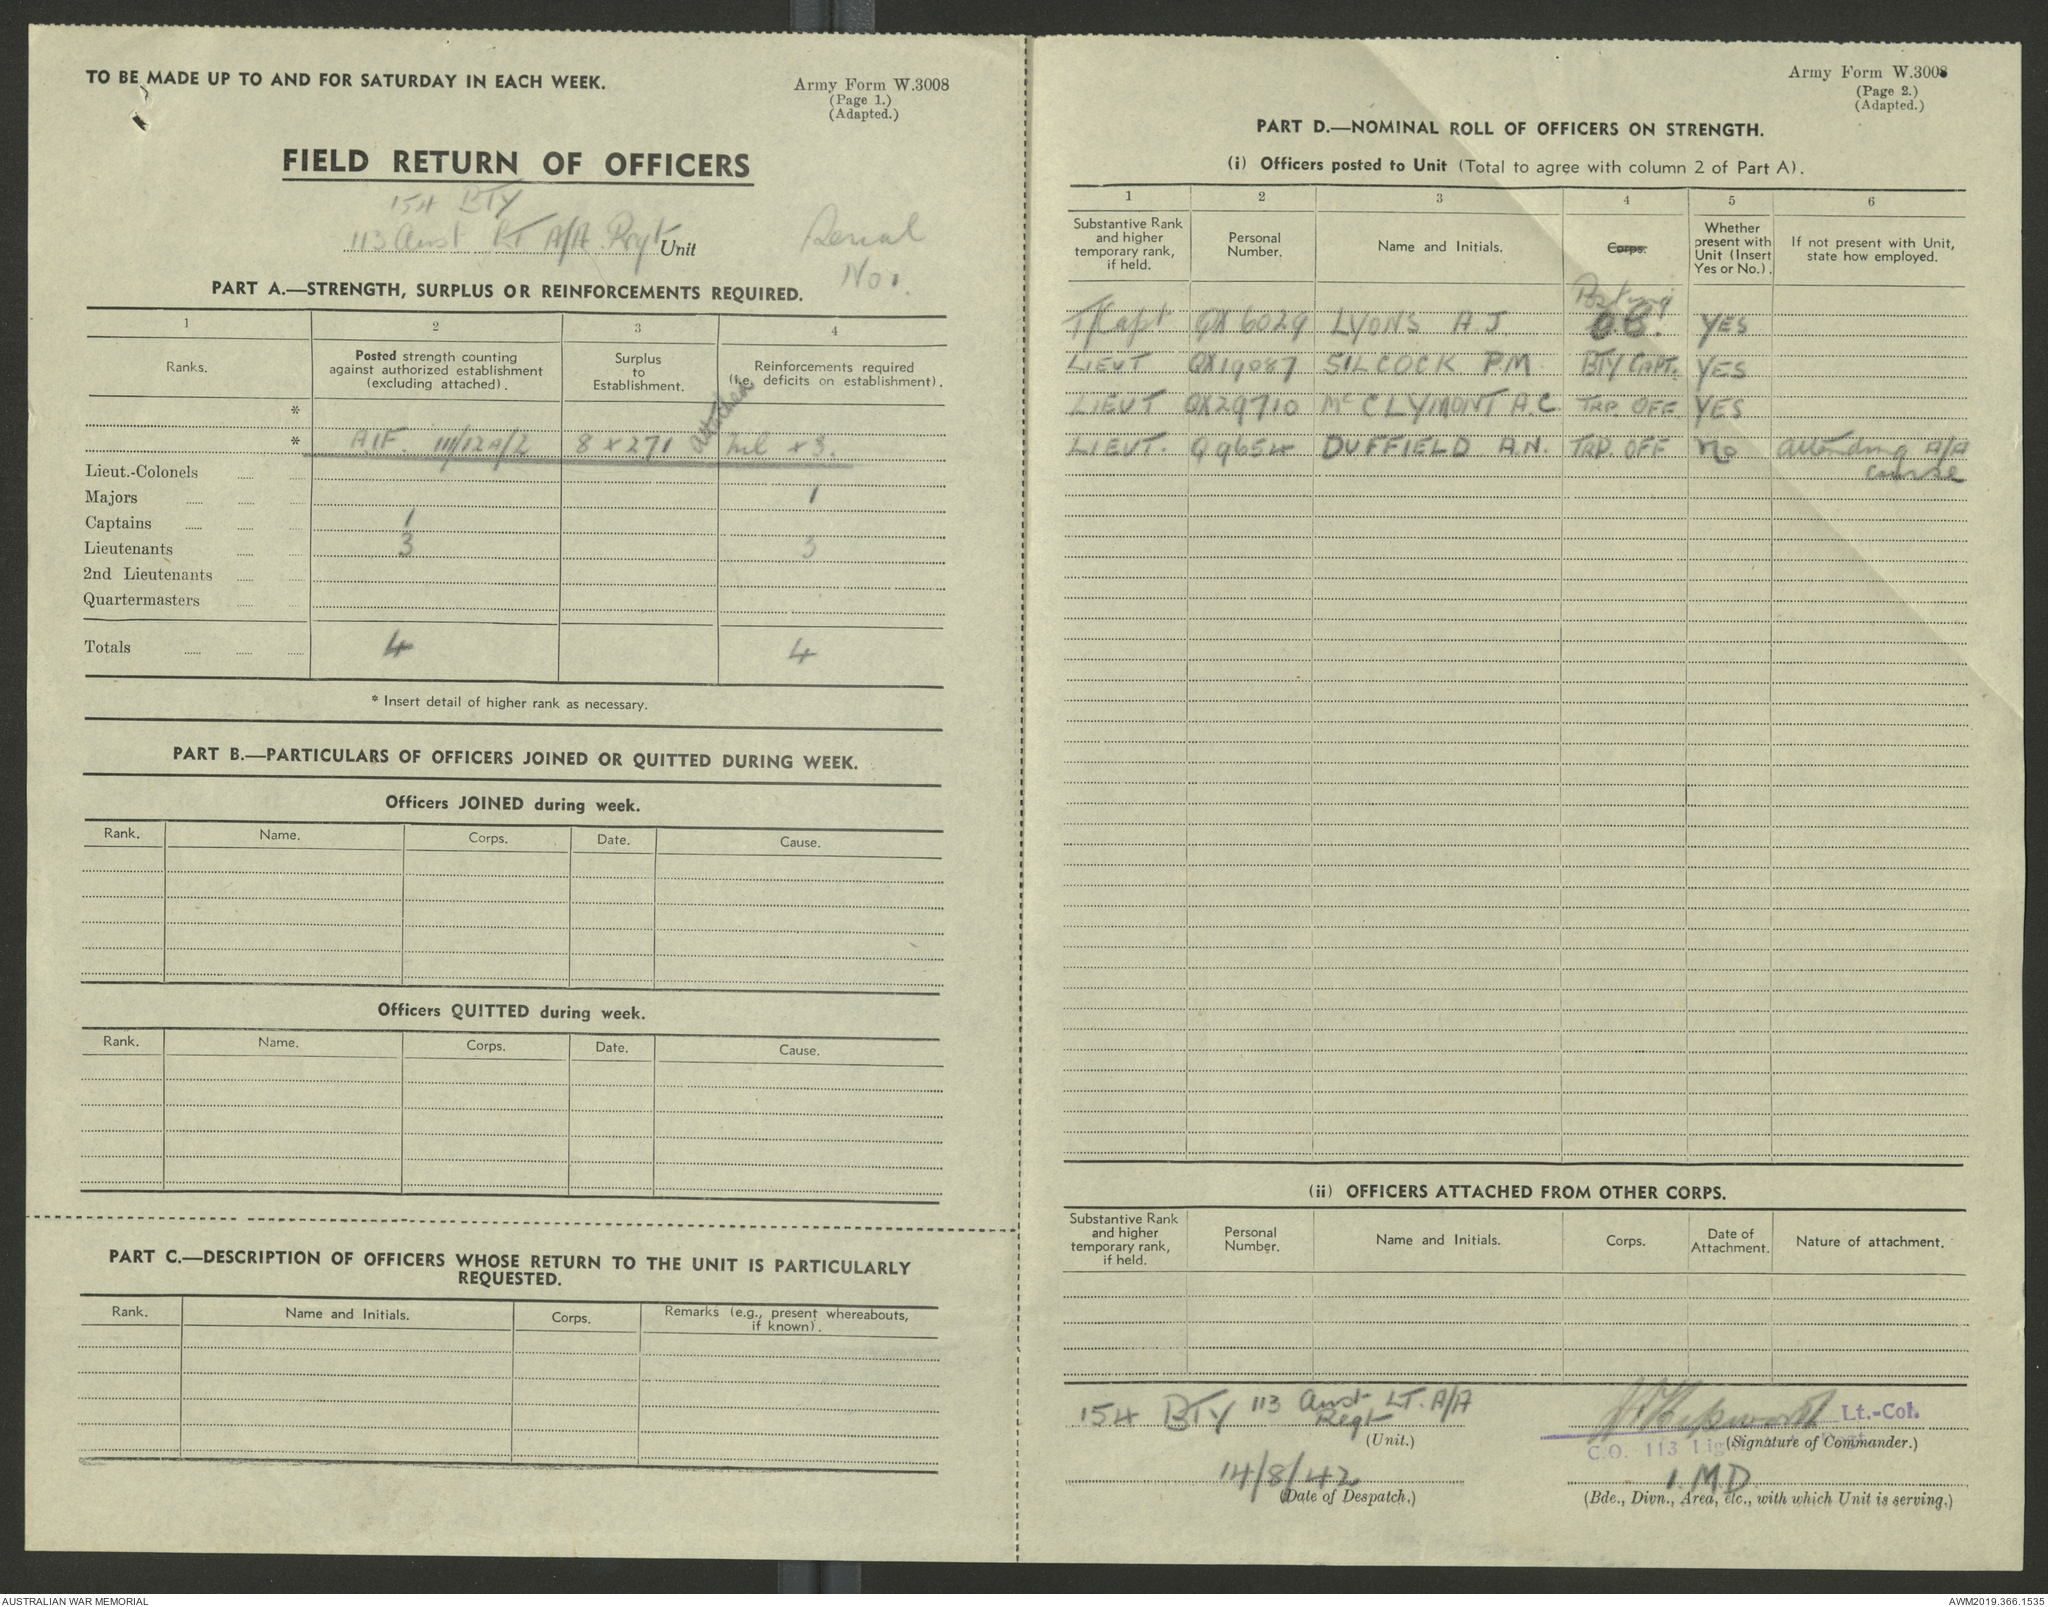 TO BE MADE UP TO AND FOR SATURDAY IN EACH WEEK.
Army Form W.3008
(Page 1.)
(Adapted.)
FIELD RETURN OF OFFICERS
154 BTY
113 Aust LT A/A Regt Unit
Serial
No 1.
PART A.—STRENGTH, SURPLUS OR REINFORCEMENTS REQUIRED.
1 2 3 4
Ranks.
Posted strength counting
against authorized establishment
(excluding attached).
Surplus
to
Establishment.
Reinforcements required
(i.e. deficits on establishment).
*
* AIF. III/12A/2 8 x 271 attached nil x 3.
Lieut.-Colonels
Majors 1
Captains 1
Lieutenants 3 3
2nd Lieutenants
Quartermasters
Totals 4 4
* Insert detail of higher rank as necessary.
PART B.—PARTICULARS OF OFFICERS JOINED OR QUITTED DURING WEEK.
Officers JOINED during week.
Rank. Name. Corps. Date. Cause.
Officers QUITTED during week.
Rank. Name. Corps. Date. Cause.
PART C.—DESCRIPTION OF OFFICERS WHOSE RETURN TO THE UNIT IS PARTICULARLY
REQUESTED.
Rank. Name and Initials. Corps. Remarks (e.g., present whereabouts,
if known).
Army Form W.3008
(Page 2.)
(Adapted.)
PART D.—NOMINAL ROLL OF OFFICERS ON STRENGTH.
(i) Officers posted to Unit (Total to agree with column 2 of Part A).
1 2 3 4 5 6
Substantive Rank
and higher
temporary rank,
if held.
Personal
Number.
Name and Initials.
Corps.
Posting
Whether
present with
Unit (Insert
Yes or No.).
If not present with Unit,
state how employed.
T/Capt QX6029 LYONS A J O.C. YES
LIEUT QX19087 SILCOCK P.M. BTY CAPT. YES
LIEUT QX29710 McCLYMONT A.C. TRP OFF YES
LIEUT. Q9654 DUFFIELD A.N. TRP. OFF no attending A/A
course
(ii) OFFICERS ATTACHED FROM OTHER CORPS.
Substantive Rank
and higher
temporary rank,
if held.
Personal
Number.
Name and Initials.
Corps.
Date of
Attachment.
Nature of attachment.
154 BTY 113 Aust LT. A/A
Regt
(Unit.)
Lt.-Col.
C.O. 113
(Signature of Commander.)
14/8/42
(Date of Despatch.)
1 MD
(Bde., Divn., Area, etc., with which Unit is serving.)
AUSTRALIAN WAR MEMORIAL
AWM2019.366.1535